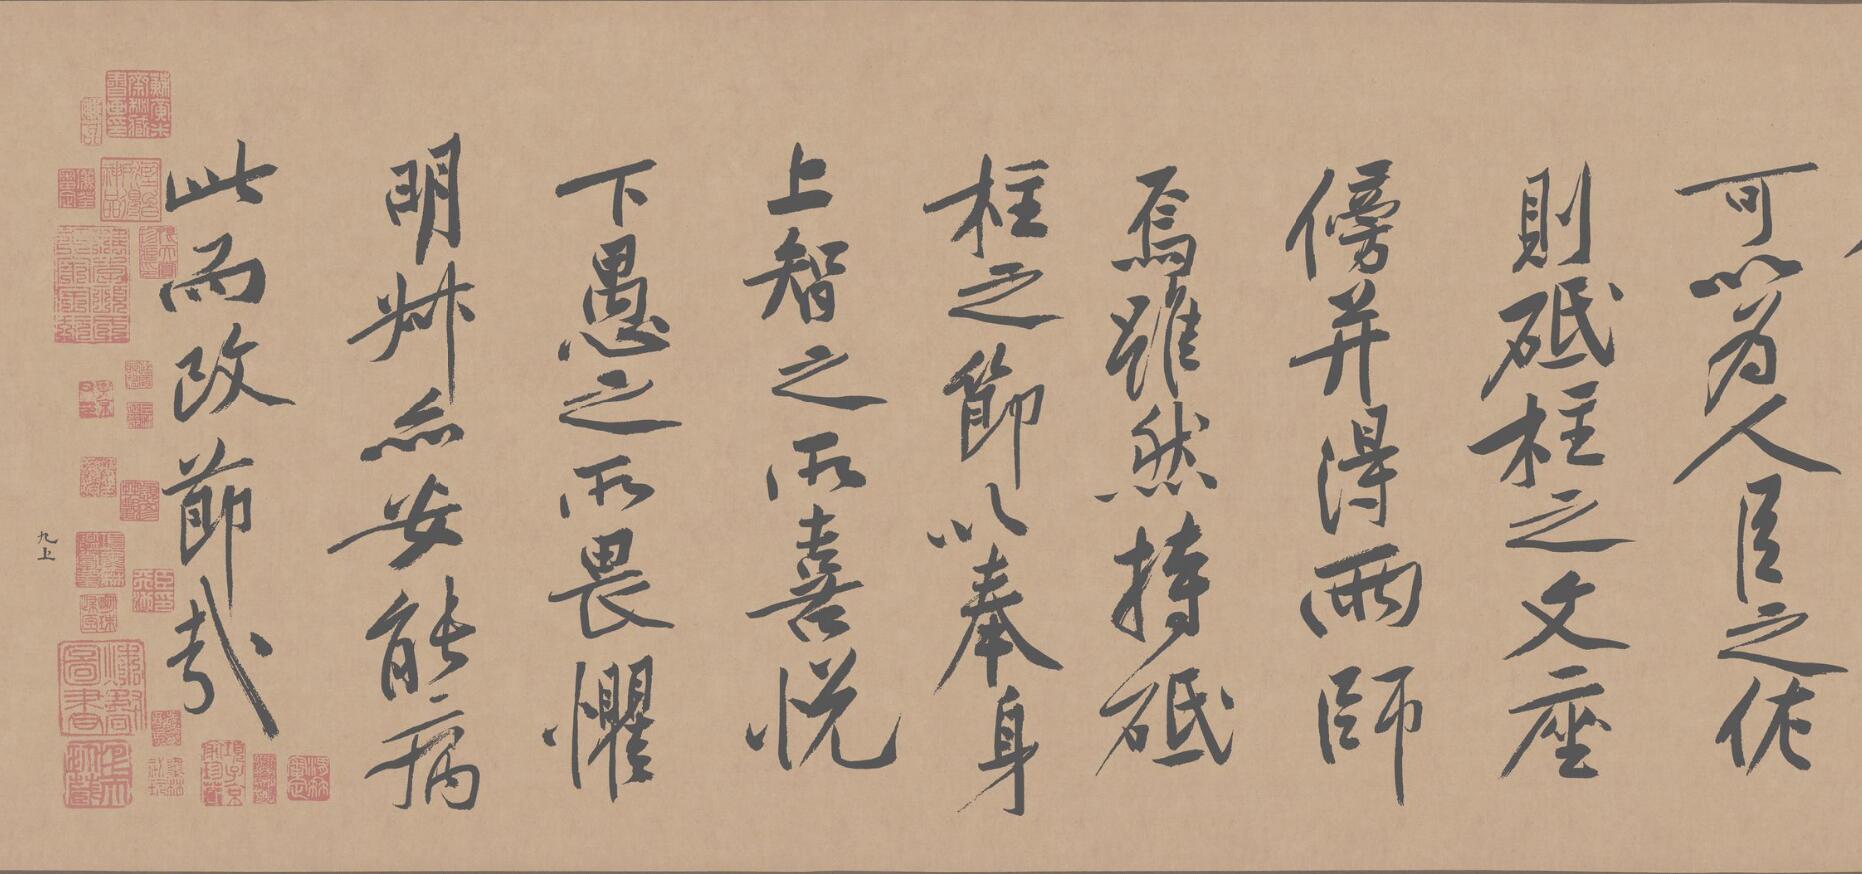 可以為人臣之佐
則砥柱之文座
傍并得兩師
焉雖然持砥
柱之節以奉身
上智之所喜悅
下愚之所畏懼
明叔亦安能病
此而改節哉
九上
項子京家珍藏